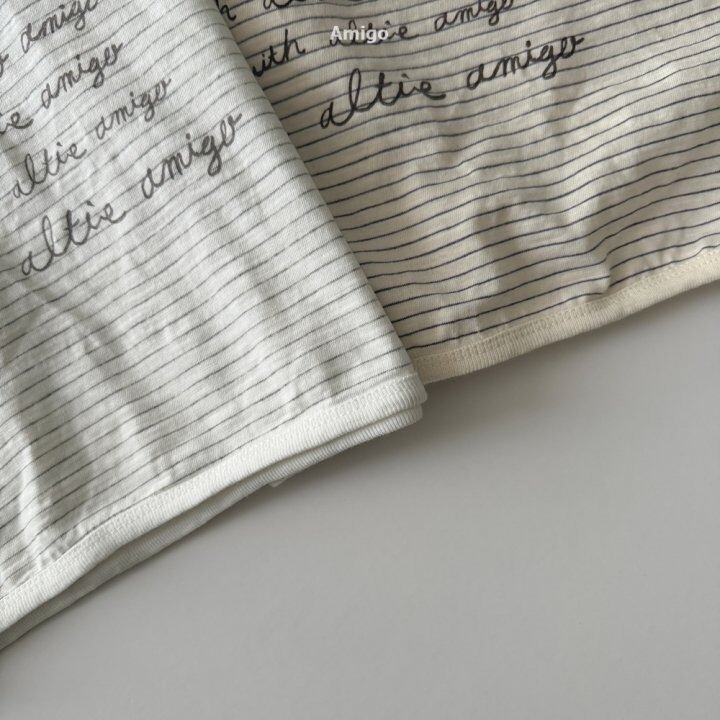 amigo
amigo
altie amigo
altie amigo
with altie amigo
altie amigo
Amigo